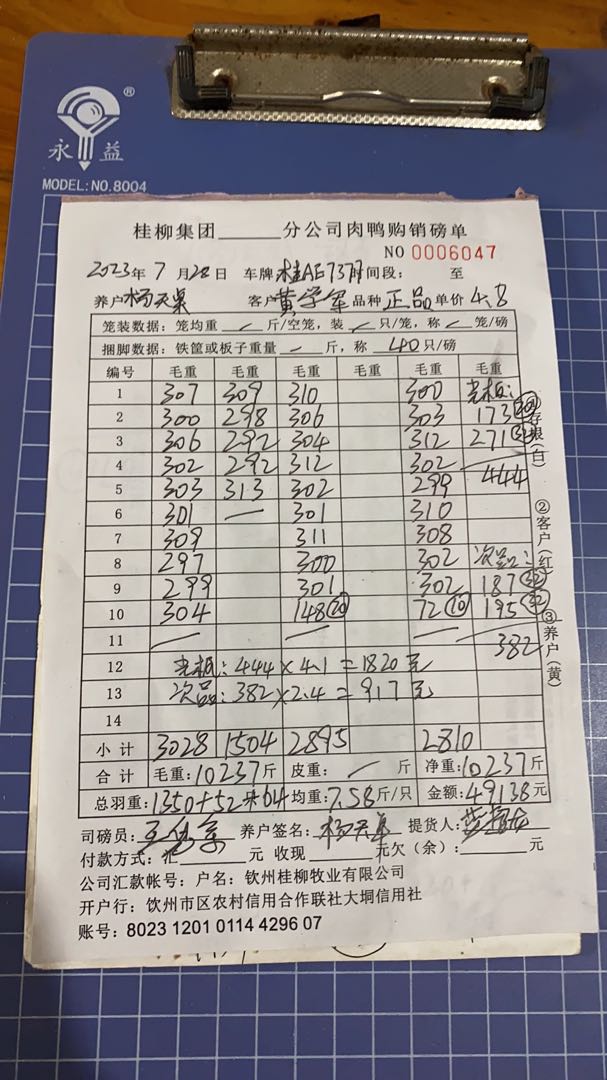 永益®
MODEL:NO.8004
桂柳集团______分公司肉鸭购销磅单
NO 0006047
2023年 7月28日 车牌 桂AE737 时间段: 至
养户 杨天 客户 黄学军 品种 正品 单价 4.8
笼装数据:笼均重 / 斤/空笼,装 / 只/笼,称 / 笼/磅
捆脚数据:铁筐或板子重量 — 斤,称 40 只/磅
编号 毛重 毛重 毛重 毛重 毛重 毛重
1 307 309 310 300 光板:
2 300 298 306 303 173
3 306 292 304 312 271
4 302 292 312 302
5 303 313 302 299 444
6 301 — 301 310
7 309 311 308
8 297 300 302 次品:
9 299 301 302 187 32
10 304 148 20 72 10 195 32
11 — — — 382
12 光板:444×4.1=1820元
13 次品:382×2.4=917元
14
小计 3028 1504 2895 2810
合计 毛重:10237斤 皮重: / 斤 净重:10237斤
总羽重:1350+52+64 均重:7.58斤/只 金额:49138元
存根(白)
②客户(红)
③养户(黄)
司磅员: 养户签名:杨天 提货人:
付款方式:汇______元 收现______元欠(余):______元
公司汇款帐号:户名:钦州桂柳牧业有限公司
开户行:钦州市区农村信用合作联社大垌信用社
账号:8023 1201 0114 4296 07